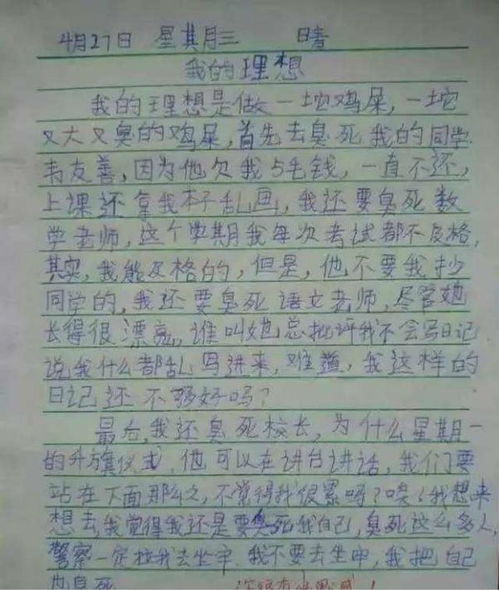 4月27日 星其月三 晴
我的理想
我的理想是做一坨鸡屎,一坨
又大又臭的鸡屎,首先去臭死我的同学
韦友善,因为他欠我5毛钱,一直不还,
上课还拿我本子乱画,我还要臭死数
学老师,这个学期我每次考试都不及格,
其实,我能及格的,但是,他不要我抄
同学的,我还要臭死语文老师,尽管她
长得很漂亮,谁叫她总批评我不会写日记
说我什么都乱写进来,难道,我这样的
日记还不够好吗?
最后,我还臭死校长,为什么星期一
的升旗仪式,他可以在讲台讲话,我们要
站在下面那么久,不觉得我很累吗?唉!我想来
想去,我觉得我还是要臭死我自己,臭死这么多人,
警察一定拉我去坐牢,我不要去坐牢,我把自己
也臭死